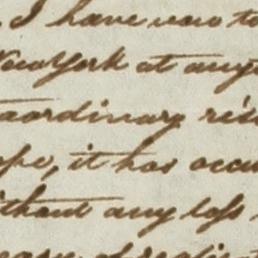 I have now to
New York at any
raordinary ris
ope, it has occu
ithout any loss